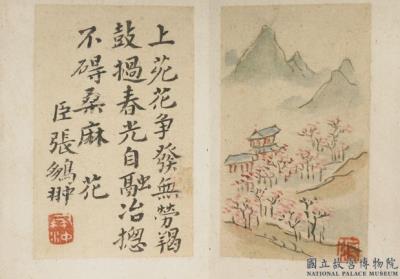 上苑花争發無勞羯
鼓撾春光自融冶揔
不碍桑麻 花
臣張鵬翀
國立故宮博物院
NATIONAL PALACE MUSEUM